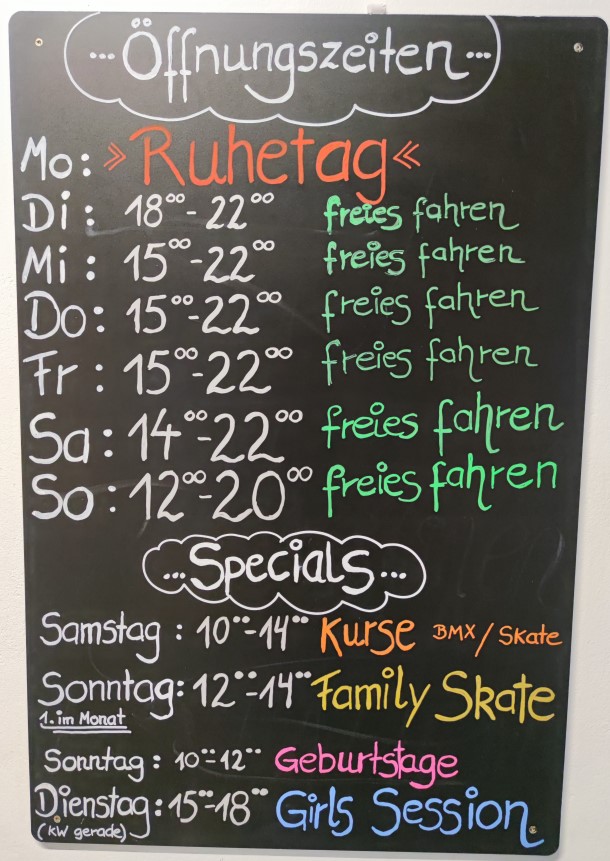 ...Öffnungszeiten...
Mo: »Ruhetag«
Di: 18⁰⁰-22⁰⁰ freies fahren
Mi: 15⁰⁰-22⁰⁰ freies fahren
Do: 15⁰⁰-22⁰⁰ freies fahren
Fr: 15⁰⁰-22⁰⁰ freies fahren
Sa: 14⁰⁰-22⁰⁰ freies fahren
So: 12⁰⁰-20⁰⁰ freies fahren
...Specials...
Samstag: 10⁰⁰-14⁰⁰ Kurse BMX/Skate
Sonntag: 12⁰⁰-14⁰⁰ Family Skate
1. im Monat
Sonntag: 10⁰⁰-12⁰⁰ Geburtstage
Dienstag: 15⁰⁰-18⁰⁰ Girls Session
(KW gerade)